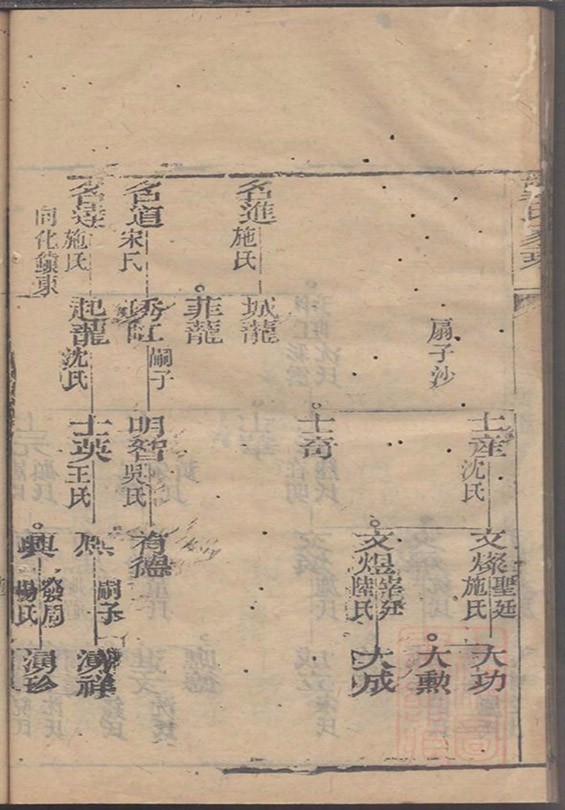 扇子沙
士產 沈氏
文燦 聖廷 施氏
大功
大勳
士奇
文煜 陸氏
大成
名進 施氏
城龍
菲龍
名道 宋氏
嗣子
明智 吳氏
有德
名達 施氏
同化鎮東
起龍 沈氏
士英 王氏
嗣子
演祥
興 發周 楊氏
演珍